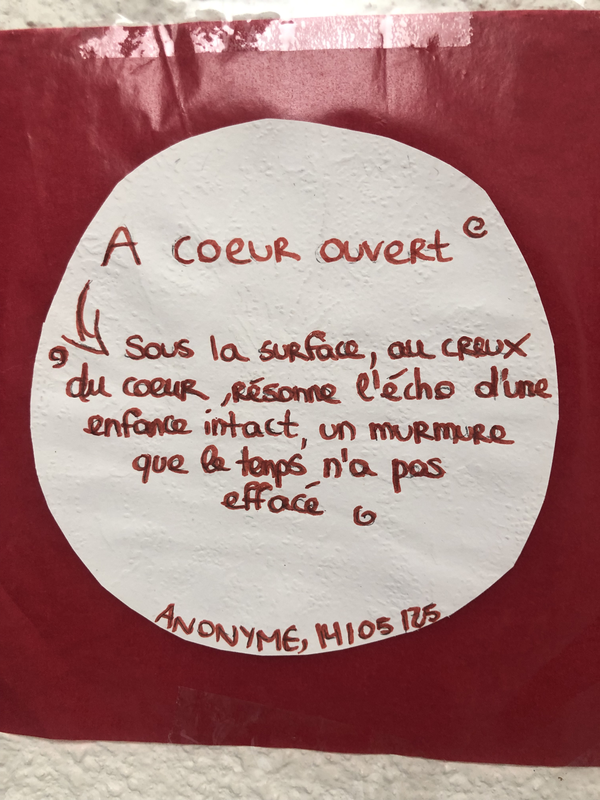 A COEUR OUVERT
Sous la surface, au creux
du coeur, résonne l'écho d'une
enfance intact, un murmure
que le temps n'a pas
effacé
ANONYME, 14/05/25